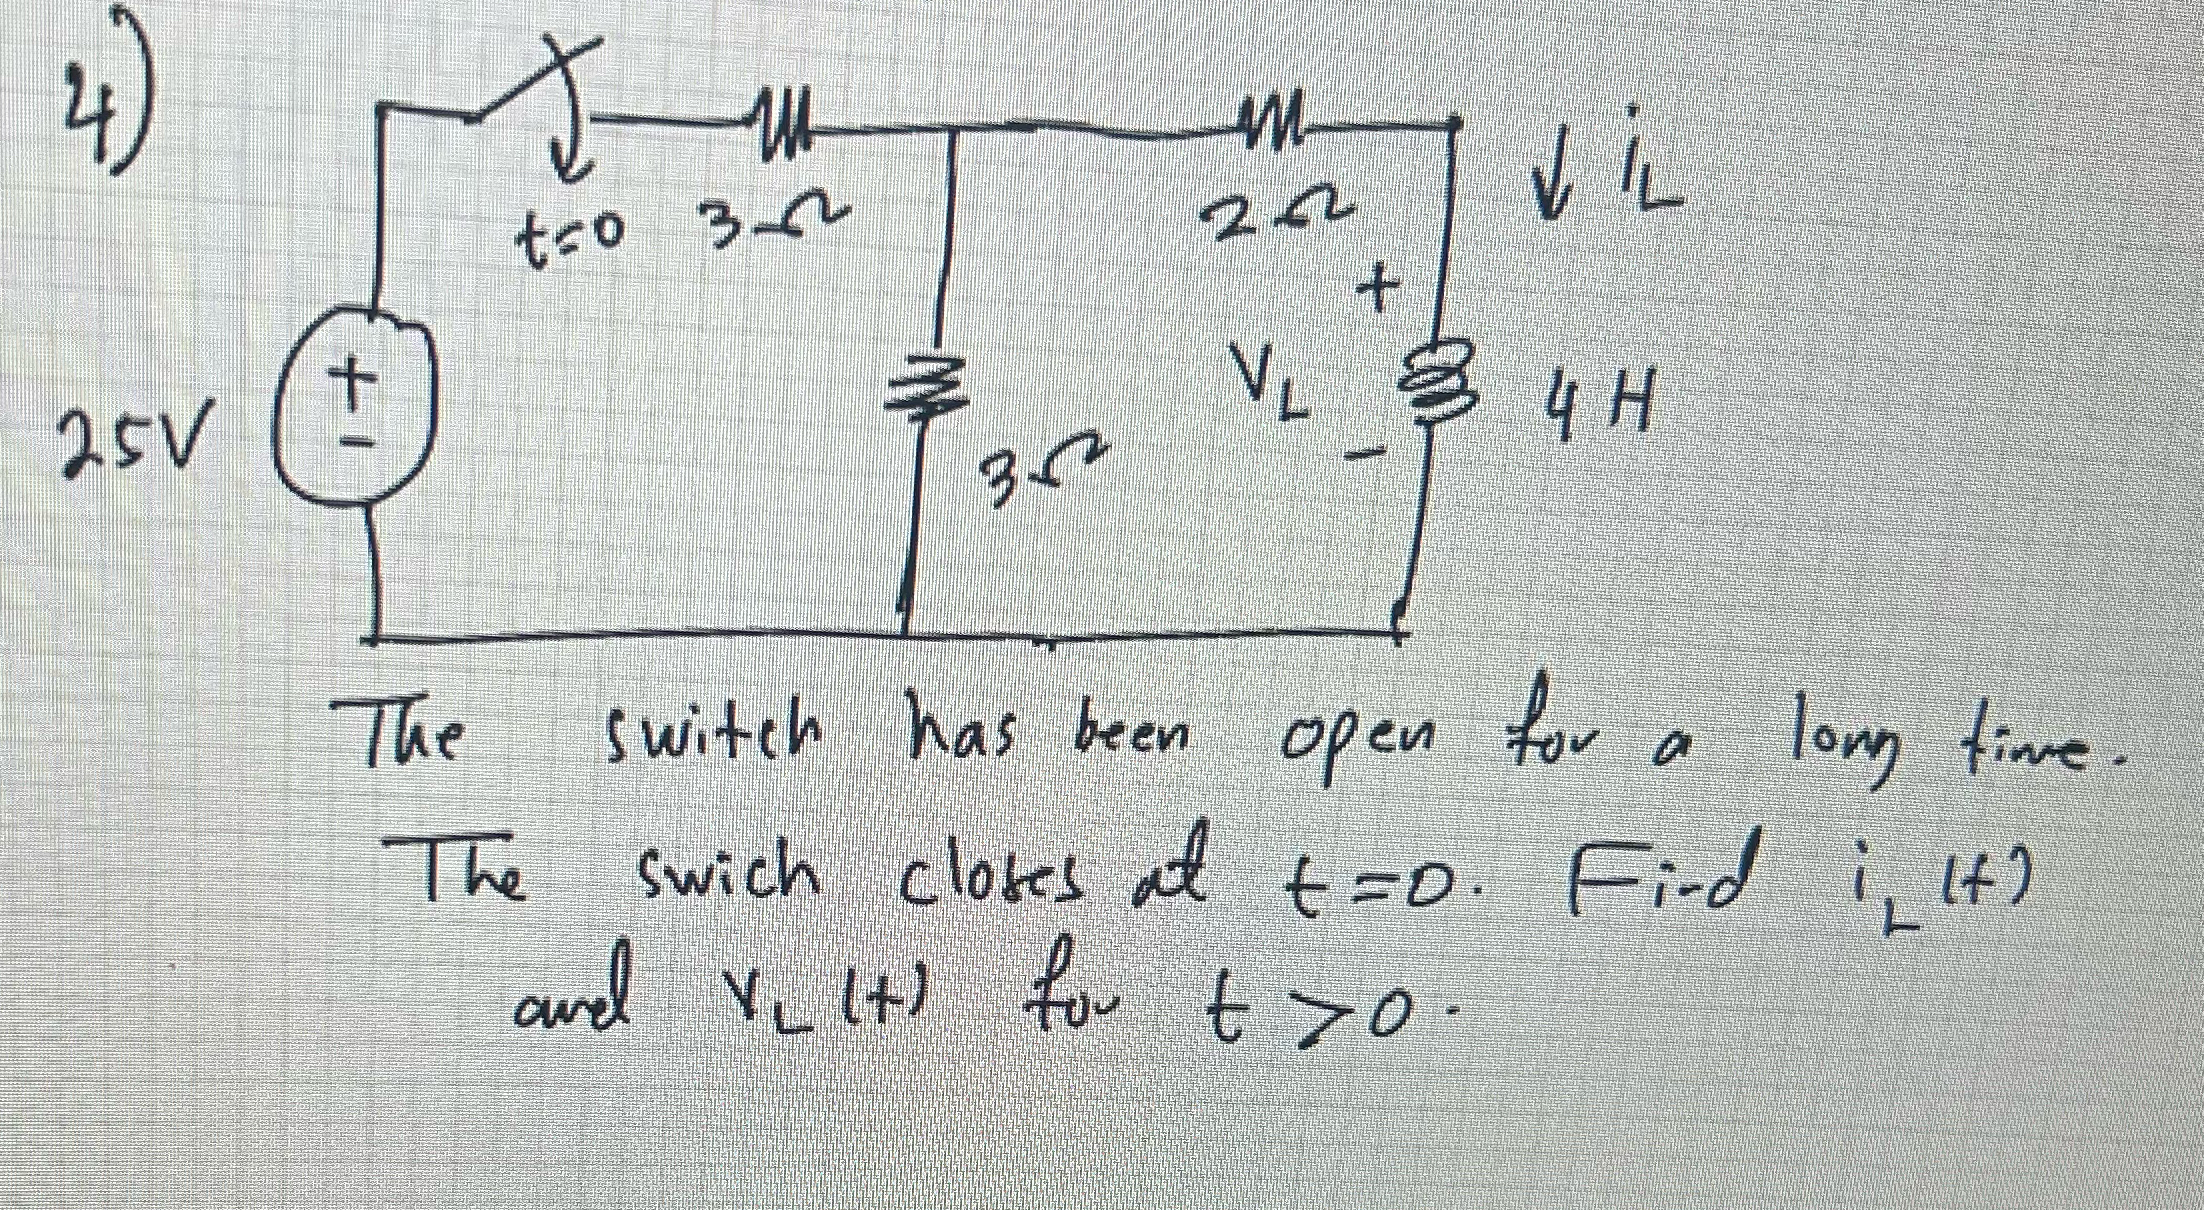 4)
t=0 3Ω
2Ω
↓ iL
+
25V
+
-
3Ω
VL
-
4 H
The switch has been open for a long time.
The swich closes at t=0. Find iL(t)
and VL(t) for t >0.